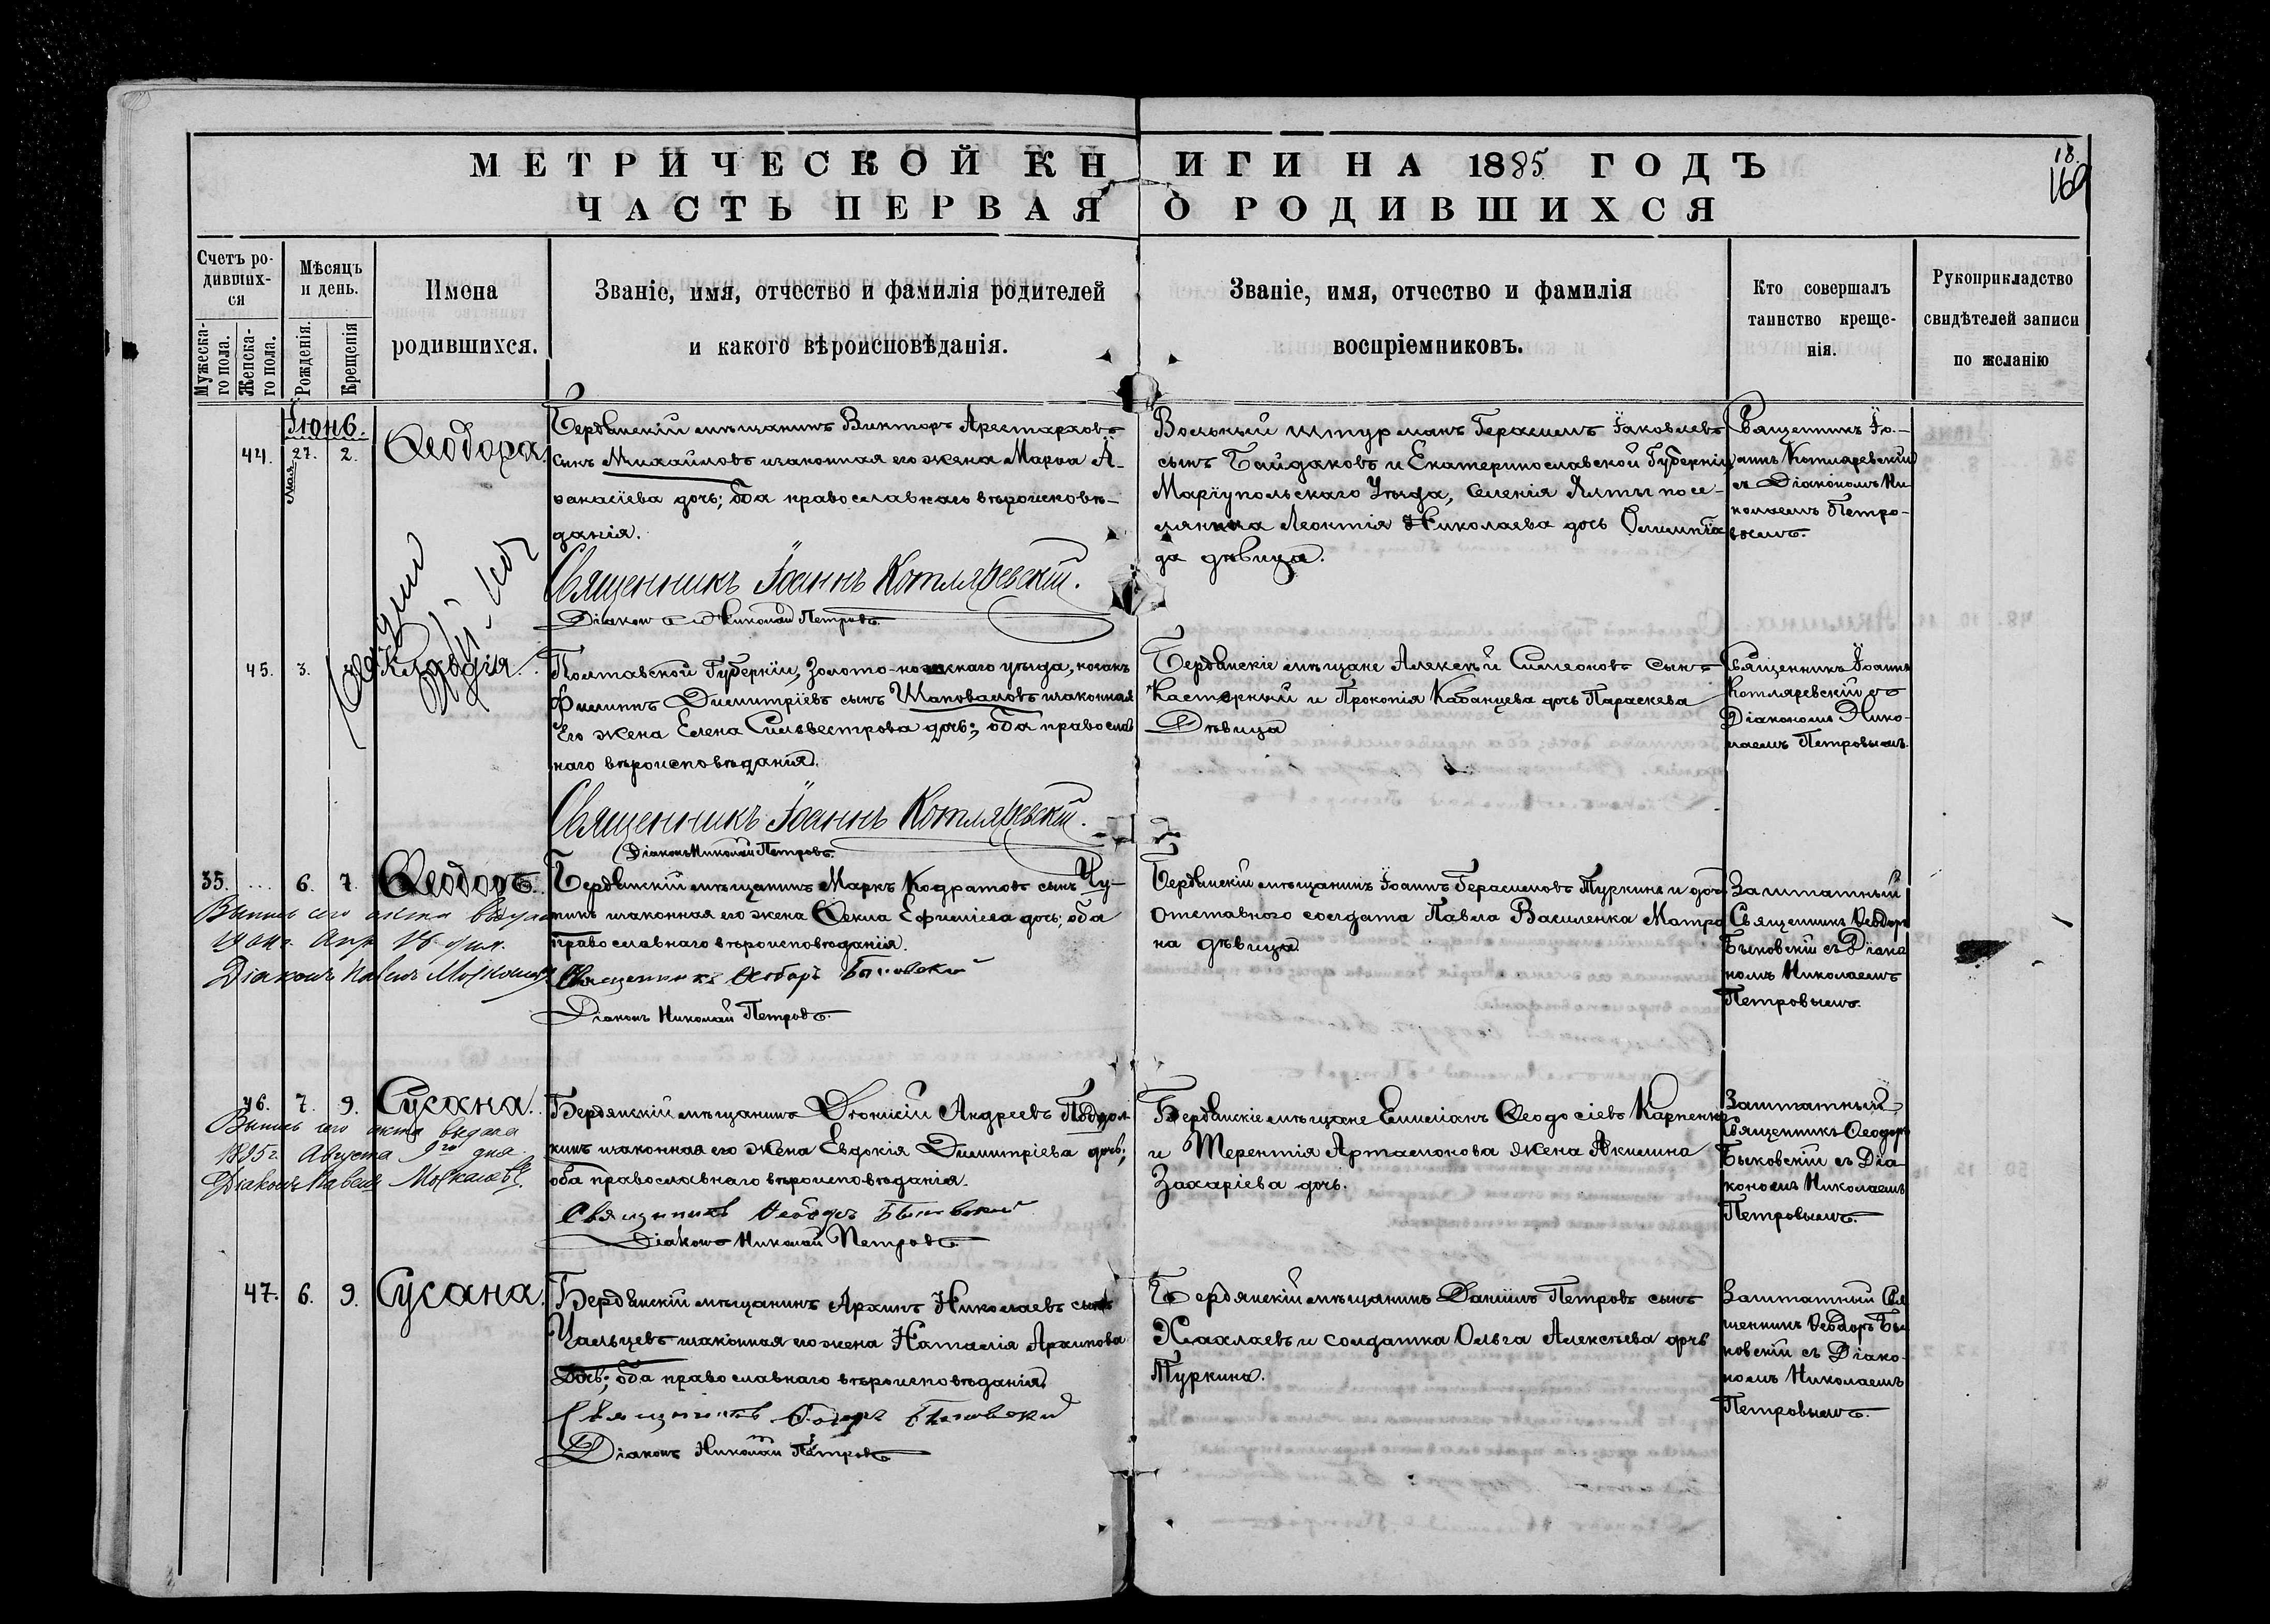 МЕТРИЧЕСКОЙ КНИГИ НА 1885 ГОДЪ
18.
169
ЧАСТЬ ПЕРВАЯ О РОДИВШИХСЯ
Счетъ ро-
дивших-
ся
Мужеска-
го пола.
Женска-
го пола.
Мѣсяцъ
и день.
Рожденія.
Крещенія
Имена
родившихся.
Званіе, имя, отчество и фамилія родителей
и какого вѣроисповѣданія.
Званіе, имя, отчество и фамилія
воспріемниковъ.
Кто совершалъ
таинство креще-
нія.
Рукоприкладство
свидѣтелей записи
по желанію
Іюнь.
44. Мая 27. 2. Ѳеодора.
Бердянскій мѣщанинъ Викторъ Аристарховъ
сынъ Михайловъ и законная его жена Марѳа А-
ѳанасіева дочь; оба православнаго вѣроисповѣ-
данія.
Священникъ Іоаннъ Котляревскій.
Діаконъ Николай Петровъ.
Вольный штурманъ Герасимъ Іаковлевъ
сынъ Байдаковъ и Екатеринославской Губерніи
Маріупольскаго Уѣзда, селенія Ялты посе-
лянина Леонтія Николаева дочь Олимпіа-
да дѣвица.
Священникъ Іо-
аннъ Котляревскій
съ Діакономъ Ни-
колаемъ Петро-
вымъ.
45. 3. Клавдія.
Полтавской Губерніи, Золото-ношскаго уѣзда, козакъ
Филиппъ Димитріевъ сынъ Шаповаловъ и законная
его жена Елена Сильвестрова дочь; оба православ
наго вѣроисповѣданія.
Священникъ Іоаннъ Котляревскій.
Діаконъ Николай Петровъ.
Бердянскіе мѣщане Алексѣй Симеоновъ сынъ
Касторный и Прокопія Кабанцева дочь Параскева
Дѣвица
Священникъ Іоаннъ
Котляревскій съ
Діакономъ Нико-
лаемъ Петровымъ.
35. ... 6. 7. Ѳеодоръ.
Выпись сего акта выдана
Апр. 16 дня.
Діаконъ Павелъ
Бердянскій мѣщанинъ Маркъ Кодратовъ сынъ Чу-
пинъ и законная его жена Ѳекла Ефиміева дочь; оба
православнаго вѣроисповѣданія.
Священникъ Ѳеодоръ Быковскій
Діаконъ Николай Петровъ.
Бердянскій мѣщанинъ Іоаннъ Герасимовъ Туркинъ и дочь
Отставного солдата Павла Василенка Матро
на дѣвица.
Заштатный
Священникъ Ѳеодоръ
Быковскій съ Діако
номъ Николаемъ
Петровымъ.
46. 7. 9. Сусана.
Выпись сего акта выдана
1895 г. Августа 9го дня
Діаконъ Павелъ
Бердянскій мѣщанинъ Діонисій Андреевъ Подгол
кинъ и законная его жена Евдокія Димитріева дочь;
оба православнаго вѣроисповѣданія.
Священникъ Ѳеодоръ Быковскій
Діаконъ Николай Петровъ.
Бердянскіе мѣщане Емиліанъ Ѳеодосіевъ Карпенко
и Терентія Артамонова жена Акилина
Захаріева дочь.
Заштатный
Священникъ Ѳеодоръ
Быковскій съ Діа
кономъ Николаемъ
Петровымъ.
47. 6. 9. Сусана.
Бердянскій мѣщанинъ Архипъ Николаевъ сынъ
Уальцевъ и законная его жена Наталія Архипова
дочь; оба православнаго вѣроисповѣданія.
Священникъ Ѳеодоръ Быковскій
Діаконъ Николай Петровъ
Бердянскій мѣщанинъ Даніилъ Петровъ сынъ
Жахлаевъ и солдатка Ольга Алексѣева дочь
Туркина.
Заштатный Свя
щенникъ Ѳеодоръ Бы
ковскій съ Діако
номъ Николаемъ
Петровымъ.